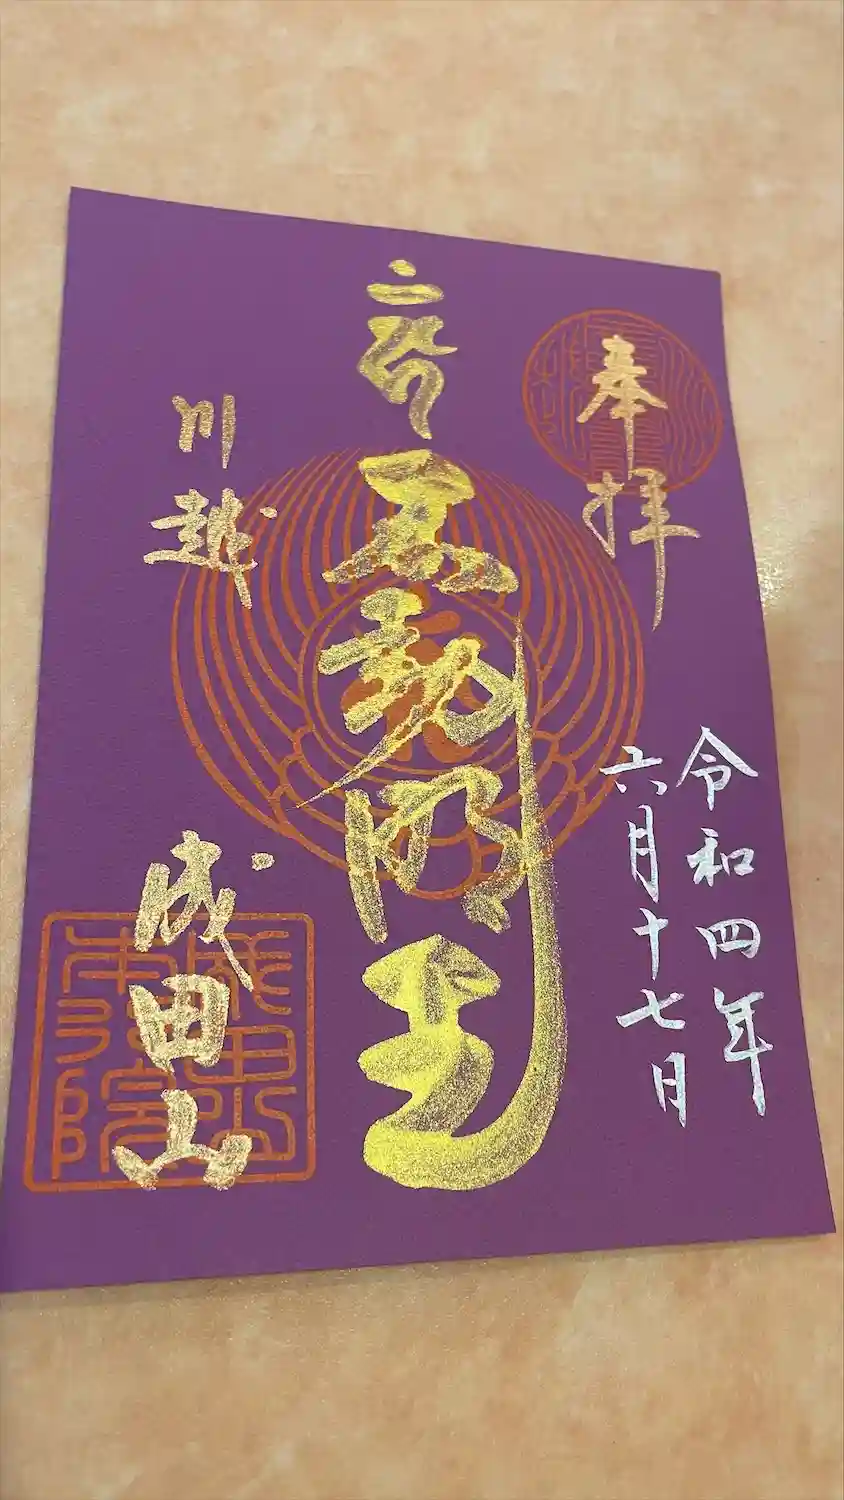 奉拝
令和四年
六月十七日
不動明王
川越
成田山
成田山
本行院